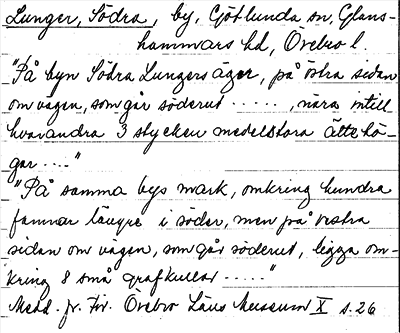 Lunger, Södra, by, Götlunda sn, Glans-
hammars hd, Örebro l.
"På byn Södra Lungers äger, på östra sidan
om vägen, som går söderut ....., nära intill
hvarandra 3 stycken medelstora ättehö-
gar ...."
"På samma bys mark, omkring hundra
famnar längre i söder, men på vestra
sidan om vägen, som går söderut, ligga om-
kring 8 små grafkullar ....."
Medd. fr. För. Örebro Läns Museum X s. 26